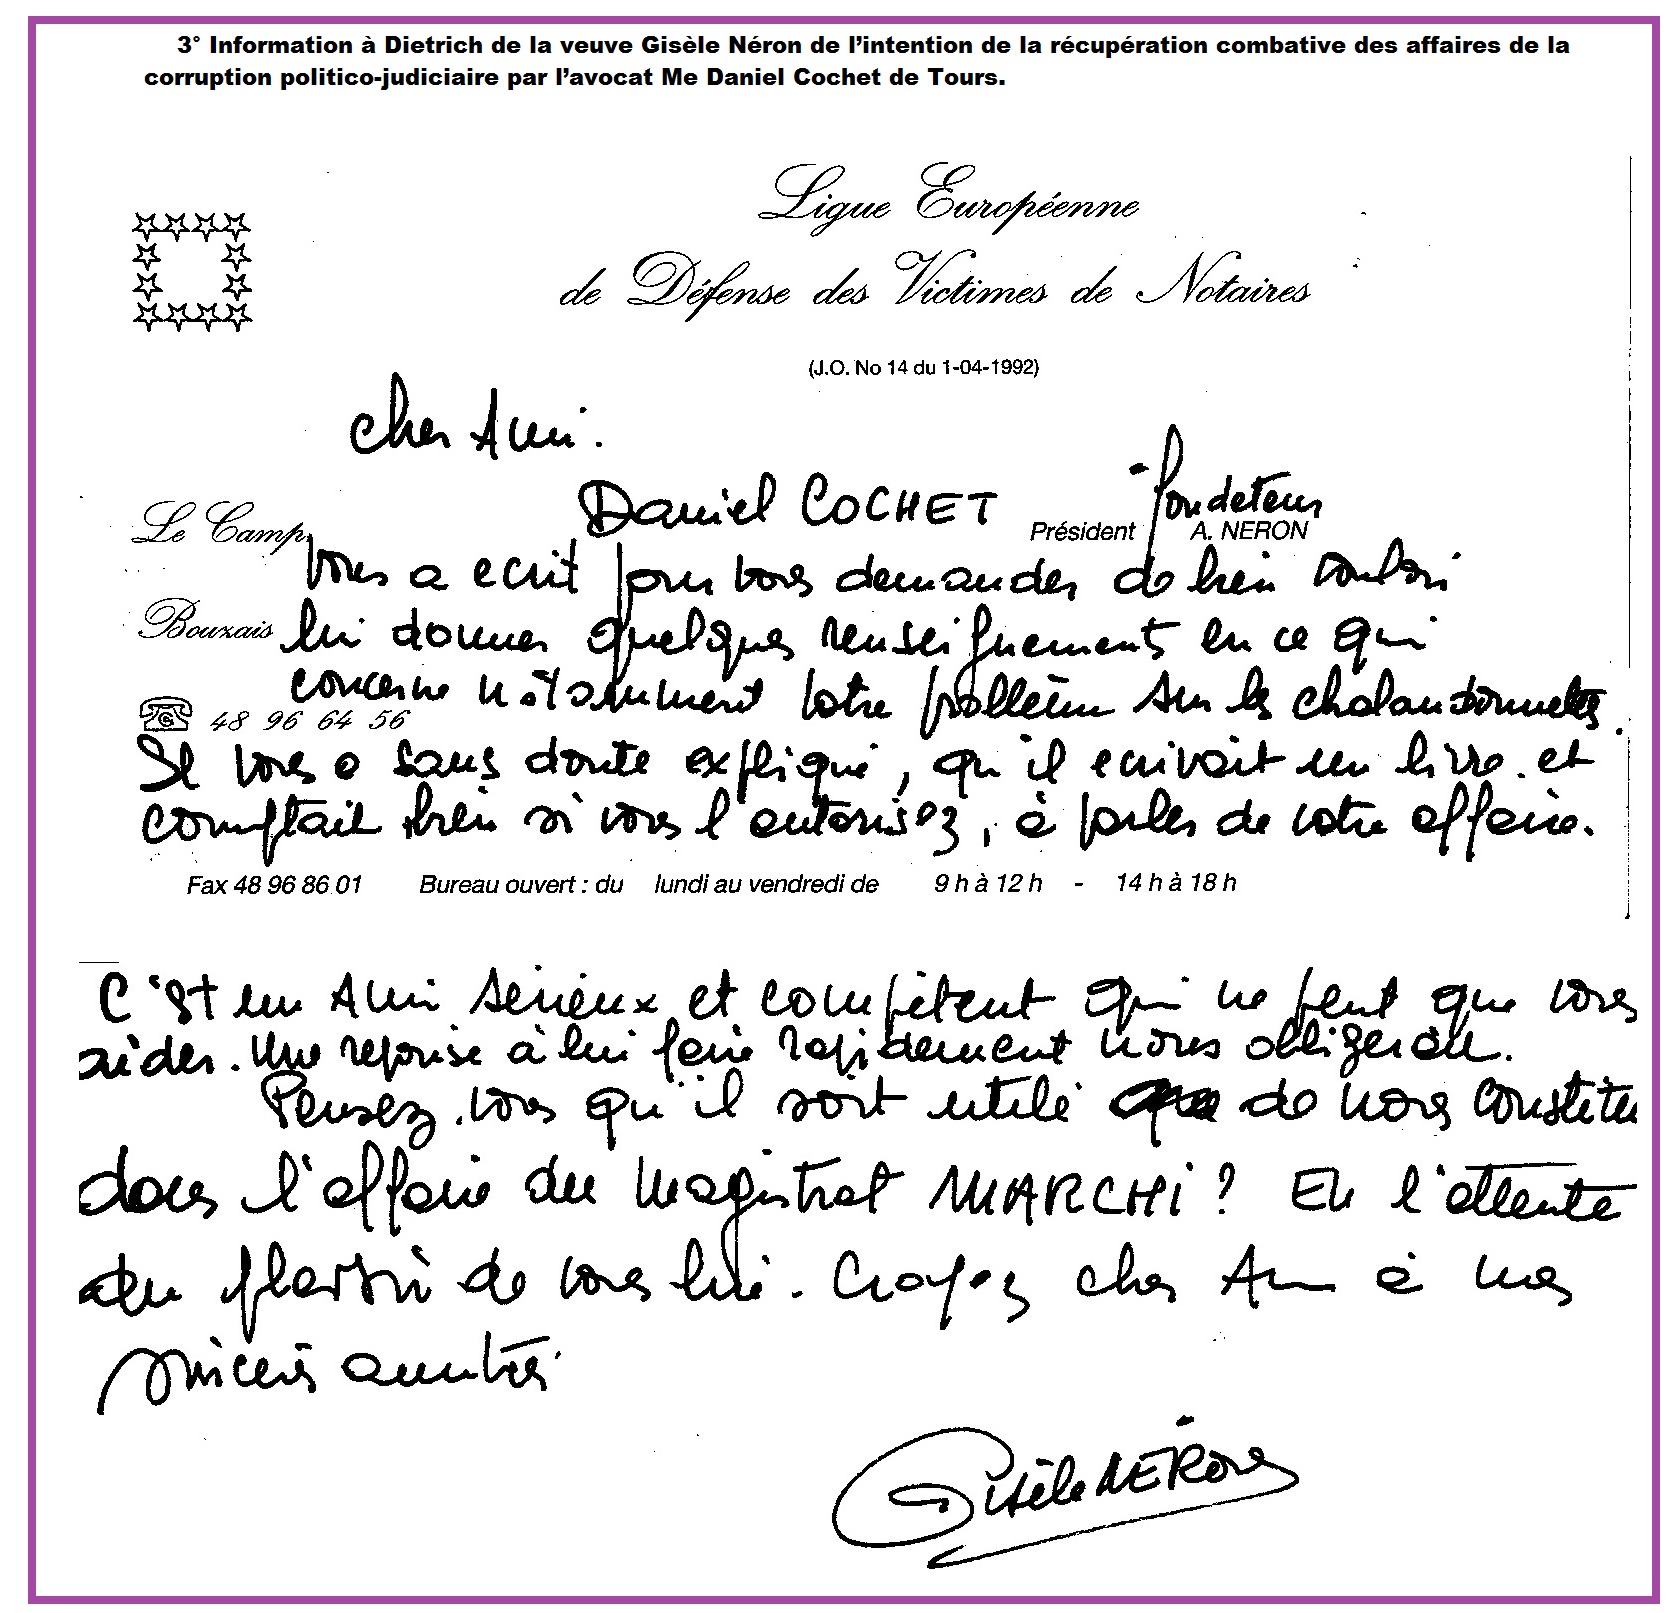 3° Information à Dietrich de la veuve Gisèle Néron de l'intention de la récupération combative des affaires de la
corruption politico-judiciaire par l'avocat Me Daniel Cochet de Tours.
Ligue Européenne
de Défense des Victimes de Notaires
(J.O. No 14 du 1-04-1992)
Cher Ami.
Daniel COCHET
fondateur
Président A. NERON
Le Camp
vous a ecrit pour vous demander de bien vouloir
Bouzais
lui donner quelques renseignements en ce qui
concerne notamment votre problème sur les chalandonnettes.
48 96 64 56
Il vous a sans doute expliqué, qu'il ecrivait un livre. et
comptait bien si vous l'autorisez, à parler de votre affaire.
Fax 48 96 86 01 Bureau ouvert : du lundi au vendredi de 9 h à 12 h - 14 h à 18 h
C'est un Ami serieux et compétent qui ne peut que vous
aider. Une reponse à lui faire rapidement nous obligerait.
Pensez.vous qu'il soit utile de nous constituer
dans l'affaire du magistrat MARCHI? En l'attente
du plaisir de vous lire. Croyez cher Ami à mes
sincères amitiés.
Gisèle NÉRON